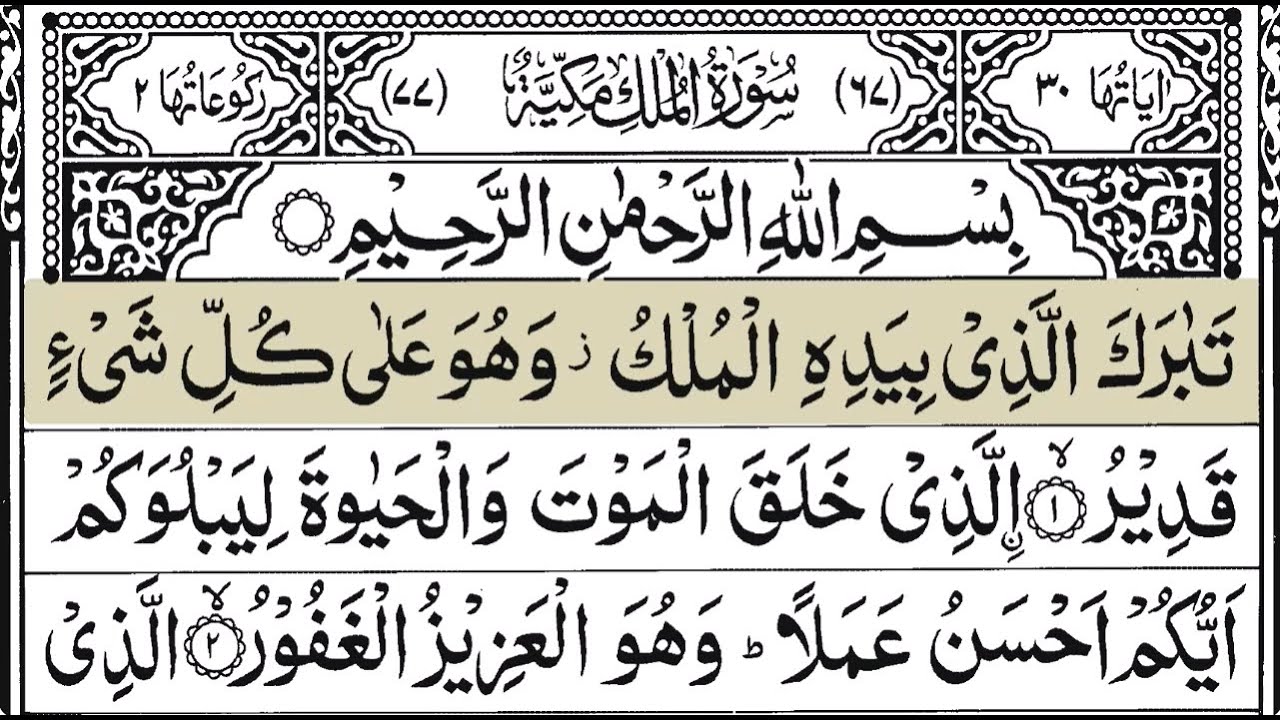 اٰیَاتُهَا ٣٠ (٦٧) سُوْرَةُ الْمُلْكِ مَكِّیَّةٌ (٧٧) رُكُوْعَاتُهَا ٢
بِسْمِ اللّٰهِ الرَّحْمٰنِ الرَّحِیْمِ
تَبٰرَكَ الَّذِیْ بِیَدِهِ الْمُلْكُ ز وَهُوَ عَلٰی كُلِّ شَیْءٍ
قَدِیْرُ ۙ‏﴿١﴾ اِ۟لَّذِیْ خَلَقَ الْمَوْتَ وَالْحَیٰوةَ لِیَبْلُوَكُمْ
اَیُّكُمْ اَحْسَنُ عَمَلًا ؕ وَهُوَ الْعَزِیْزُ الْغَفُوْرُ ۙ‏﴿٢﴾ الَّذِیْ